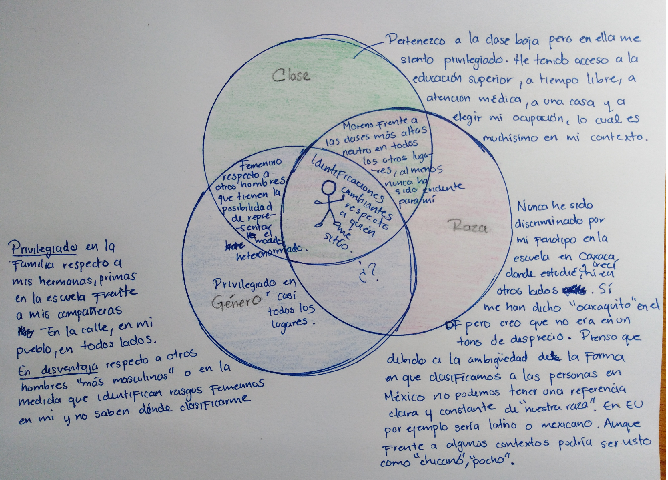 Clase
Pertenezco a la clase baja pero en ella me
siento privilegiado. He tenido acceso a la
educación superior, a tiempo libre, a
atención médica, a una casa y a
elegir mi ocupación, lo cual es
muchísimo en mi contexto.
Moreno frente a
las clases más altas
neutro en todos
los otros luga-
res, al menos
nunca ha
sido evidente
para mí
Femenino
respecto a
otros hombres
que tienen la
posibilidad
de repre-
sentar
el
modelo
heteronormado.
Identificaciones
cambiantes
respecto
a quien
me
sitúo.
Raza
Nunca he sido
discriminado por
mi fenotipo en la
escuela en Oaxaca
donde estudié, crecí
ni en
otros lados. Sí
me han dicho "oaxaquito" en el
DF pero creo que no era en un
tono de desprecio. Pienso que
debido a la ambigüedad de la forma
en que clasificamos a las personas en
México no podemos tener una referencia
clara y constante de "nuestra raza". En EU
por ejemplo sería latino o mexicano. Aunque
frente a algunos contextos podría ser visto
como "chicano", "pocho".
¿?
Privilegiado en
Género casi
todos los
lugares.
Privilegiado en la
familia respecto a
mis hermanas, primas
en la escuela frente
a mis compañeras
En la calle, en mi
pueblo, en todos lados.
En desventaja respecto a otros
hombres "más masculinos" o en la
medida que identifican rasgos femeninos
en mí y no saben dónde clasificarme